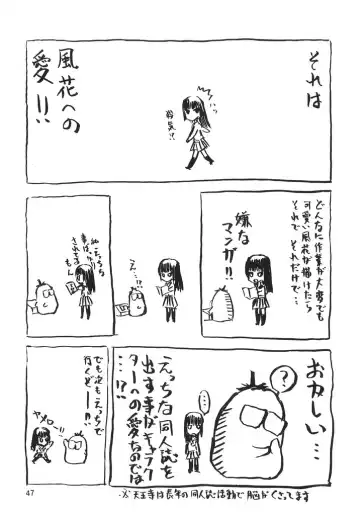 それは
風花への
愛!!
どんなに作業が大変でも
可愛い風花が描けたら
それで それだけで…
嫌な
マンガ!!
え…!?
されてるもん
おかしい…
?
…
えっちな同人誌を
出す事がキャラク
ターへの愛なのでは
…!?
でも次もえっちで
行くぞーー!!
ヤメロ
※天王寺は長年の同人誌活動で脳がくさってます
47